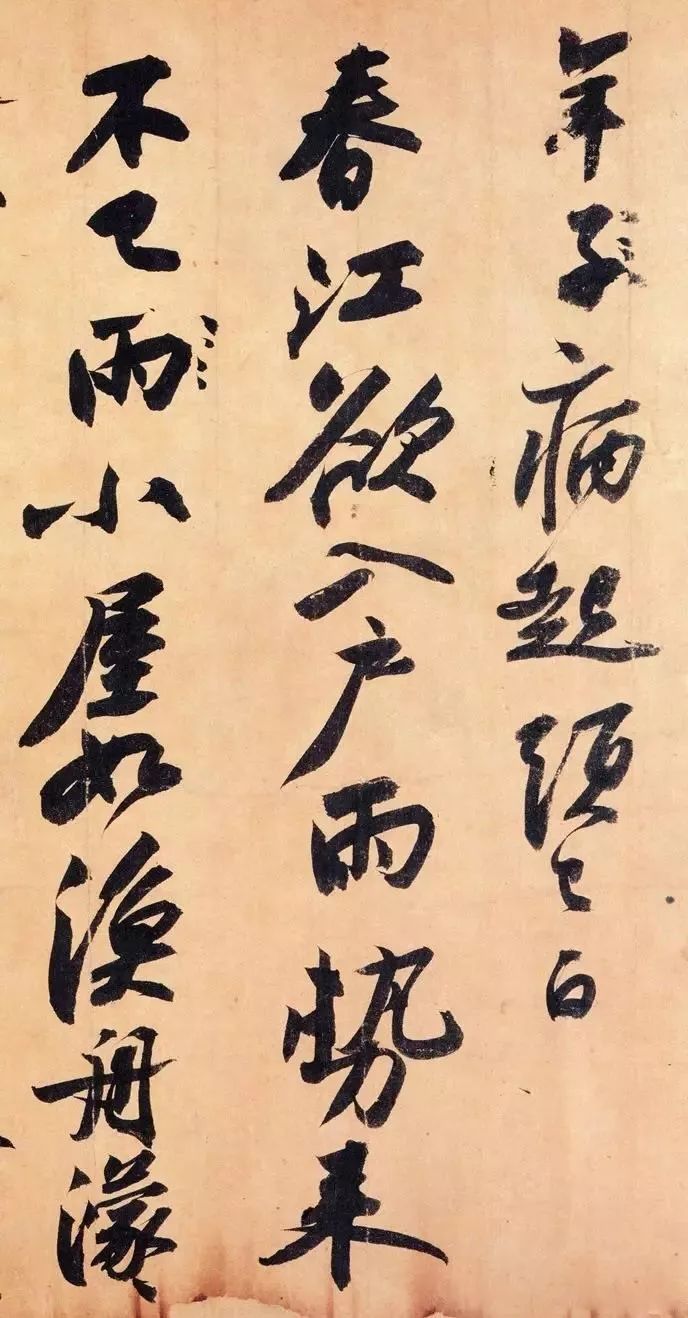 年子病起頭已白
春江欲入户雨勢来
不已雨小屋如漁舟濛〻